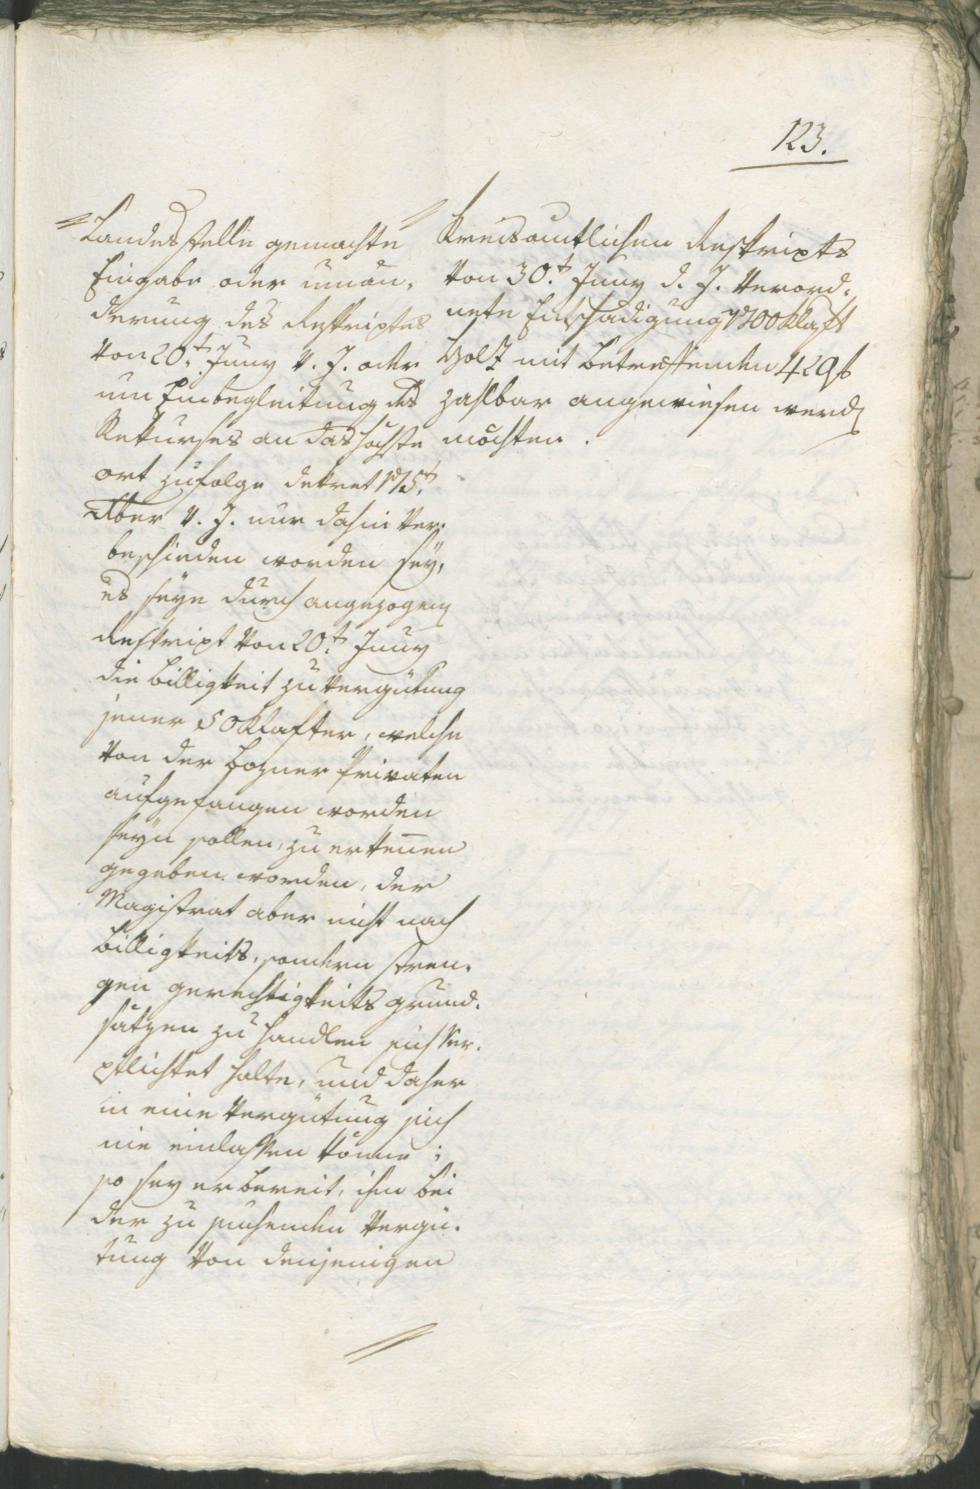 123.
Landesstelle gemachte
Eingabe oder um än¬
derung des Reskriptes
von 20.t Juny v. J. oder
um Einbegleitung des
Rekurses an das höchste
ort zufolge dekret 15.t
7ber v. J. nur dahin ver¬
beschieden worden sey,
es seye durch angezogenes
Reskript von 20.t Juny
die billigkeit zu vergütung
jener 50 Klafter, welche
von der Bozner Privaten
aufgefangen worden
seyn sollen, zu erkennen
gegeben worden, der
Magistrat aber nicht nach
billigkeits, sondern stren¬
gen gerechtigkeits grund¬
sätzen zu handlen sich ver¬
pflichtet halte, und daher
in eine Vergütung sich
nie einlassen könne;
so sey er bereit, ihm bei
der zu suchenden Vergü¬
tung von denjenigen
Kreisamtlichen Reskripts
von 30.t Juny d. J. verord¬
nete Entschädigung 100 Klaft
Holz mit betreffenden 429 f
zahlbar angewiesen werden
möchten.